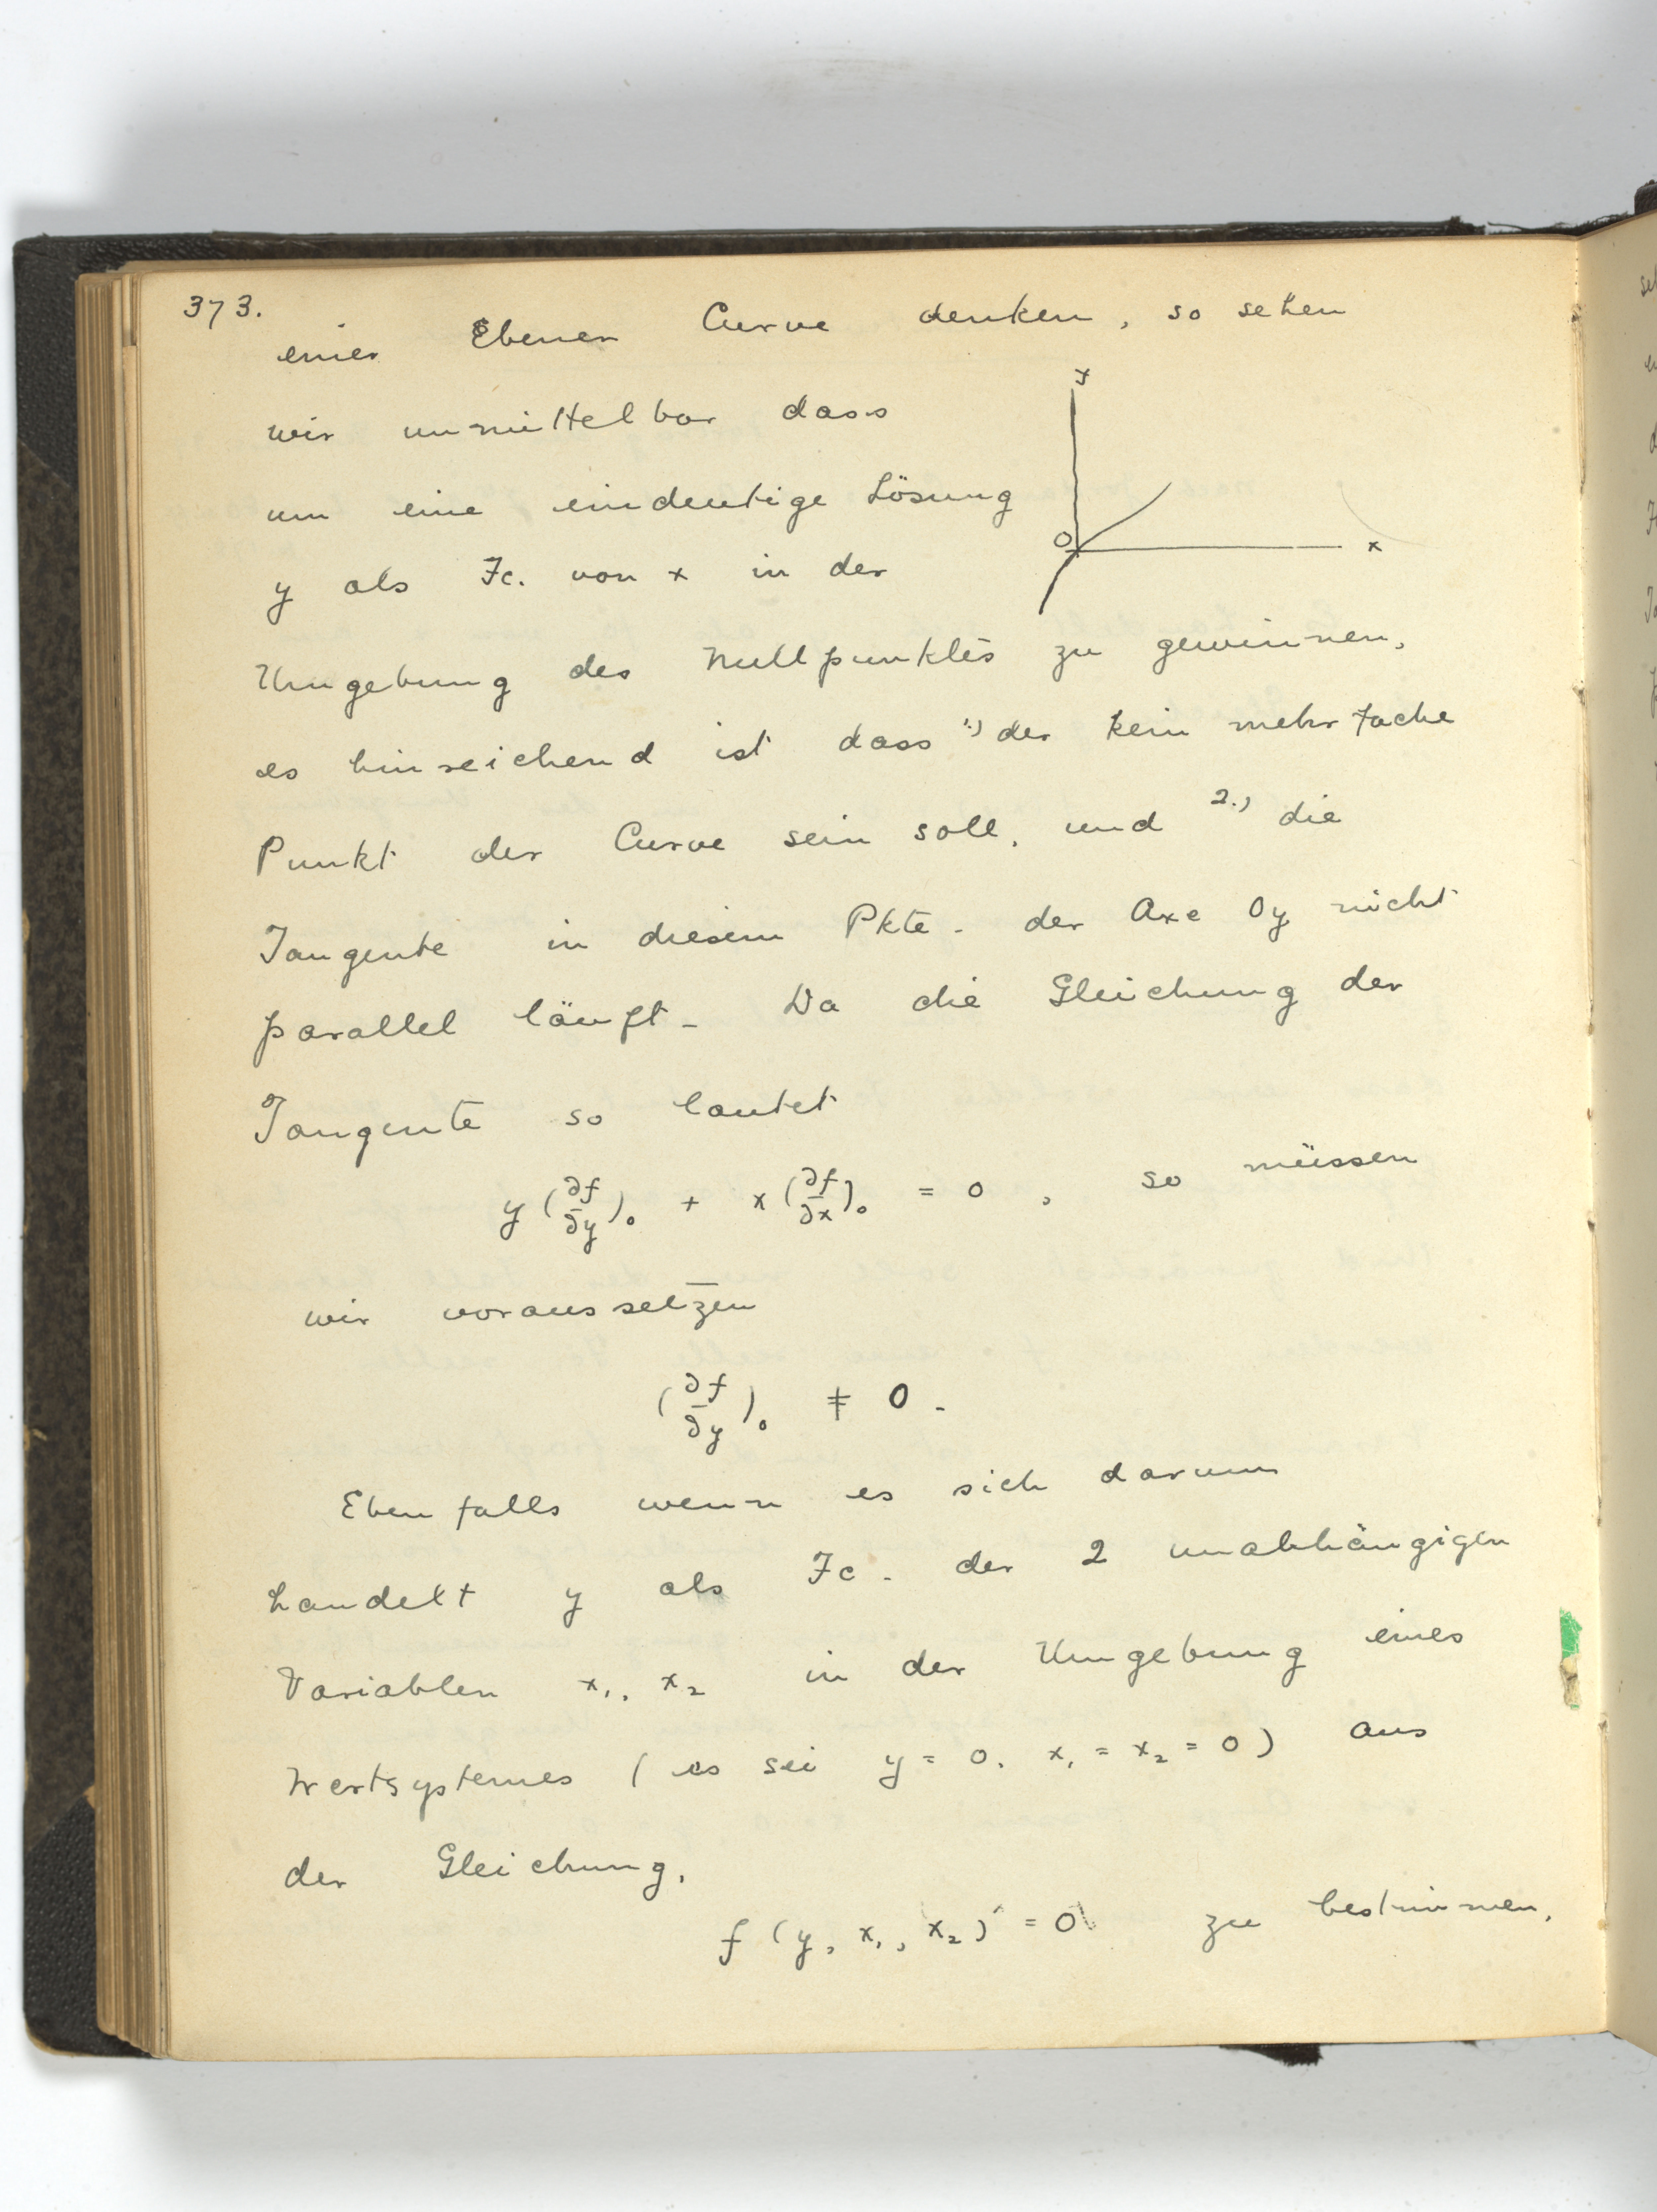 373.
einer Ebenen Curve denken, so sehen
wir unmittelbar dass
y
um eine eindeutige Lösung
O
x
y als Fc. von x in der
Umgebung des Nullpunktes zu gewinnen,
es hinreichend ist dass 1.) der kein mehrfache
Punkt der Curve sein soll, und 2.) die
Tangente in diesem Pkte. der Axe Oy nicht
parallel läuft. Da die Gleichung der
Tangente so lautet
y (∂f/∂y)₀ + x (∂f/∂x)₀ = 0, so müssen
wir voraussetzen
(∂f/∂y)₀ ≠ 0.
Ebenfalls wenn es sich darum
handelt y als Fc. der 2 unabhängigen
Variablen x₁, x₂ in der Umgebung eines
Wertsystemes (es sei y = 0. x₁ = x₂ = 0) aus
der Gleichung,
f (y, x₁, x₂) = 0 zu bestimmen,